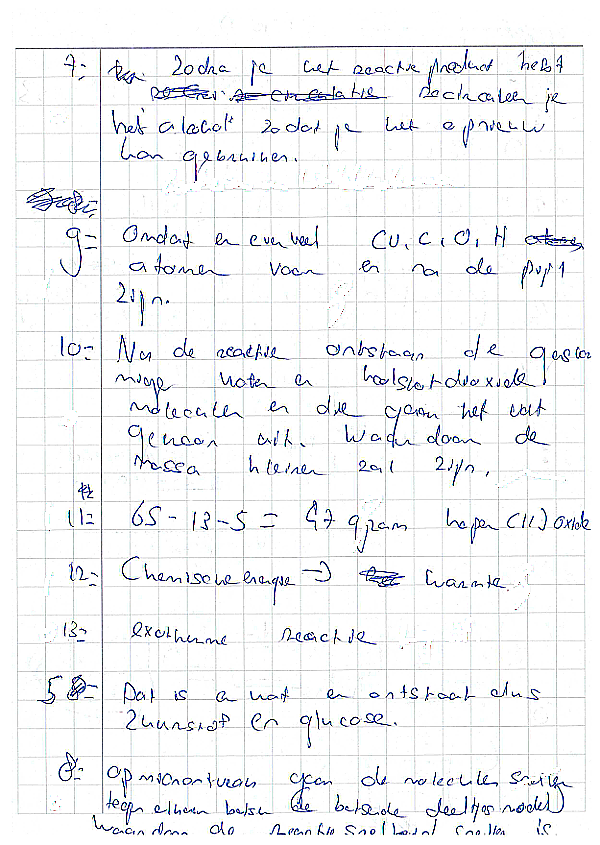 7= Zodra je het reactie product hebt
recirculeer je
het alcohol zodat je het opnieuw
kan gebruiken.
9= Omdat er evenveel Cu, C, O, H
atomen voor en na de pijl
zijn.
10= Na de reactie ontstaan de gasvor
mige water en koolstofdioxide
moleculen en die gaan het
uit. Waardoor de
massa kleiner zal zijn.
11= 65-13-5= 47 gram koper (II) oxide
12= Chemische energie → warmte
13= exotherme reactie
5= Dat is er ontstaat dus
zuurstof en glucose.
8= op microniveau gaan de moleculen sneller
tegen elkaar botsen (de botsende deeltjes model)
waardoor de reactie snelheid sneller is